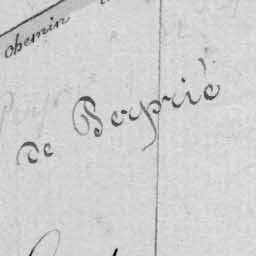 chemin
de Beyrié